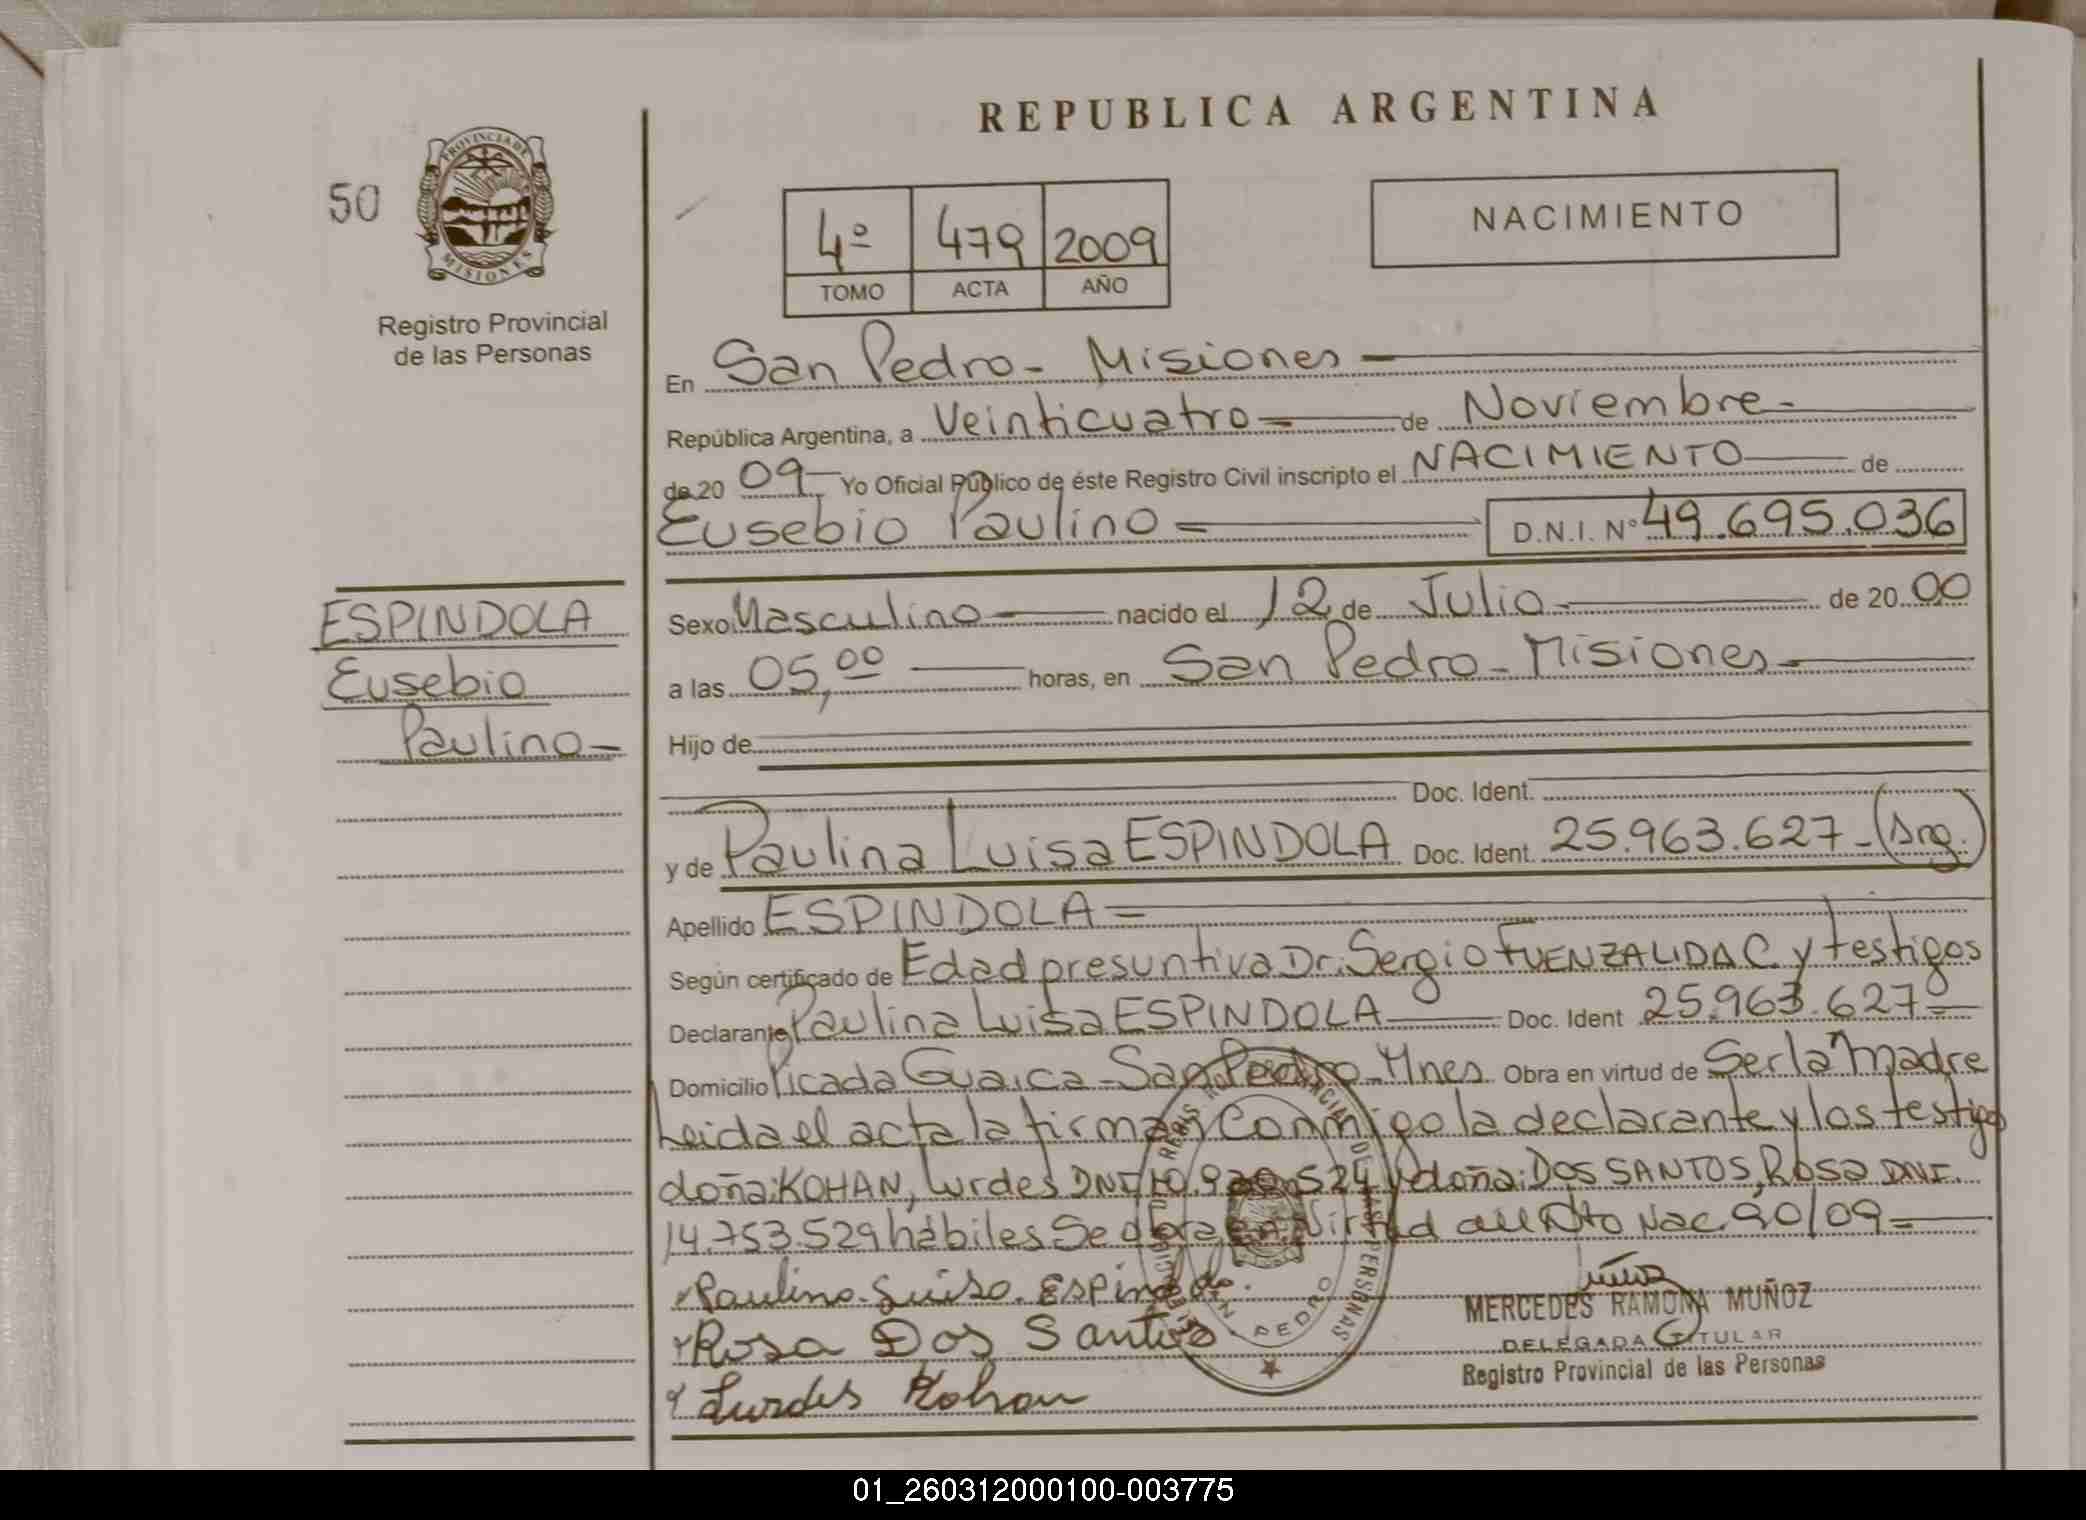 REPUBLICA ARGENTINA
50
PROVINCIA DE
MISIONES
Registro Provincial
de las Personas
4º 479 2009
TOMO ACTA AÑO
NACIMIENTO
En San Pedro - Misiones
República Argentina, a Veinticuatro de Noviembre
de 20 09 Yo Oficial Público de éste Registro Civil inscripto el NACIMIENTO de
Eusebio Paulino D.N.I. Nº 49.695.036
ESPINDOLA
Eusebio
Paulino
Sexo Masculino nacido el 12 de Julio de 20 00
a las 05,00 horas, en San Pedro - Misiones
Hijo de
Doc. Ident.
y de Paulina Luisa ESPINDOLA Doc. Ident. 25.963.627 - (Arg.)
Apellido ESPINDOLA
Según certificado de Edad presuntiva Dr. Sergio FUENZALIDA C. y testigos
Declarante Paulina Luisa ESPINDOLA Doc. Ident 25.963.627
Domicilio Picada Guaica - San Pedro - Mnes Obra en virtud de Ser la madre
Leida el acta la firman conmigo la declarante y los testigo
doña: KOHAN, Lurdes DNI 524 y doña: DOS SANTOS, Rosa DNI.
14.753.529 hábiles Se obra en Virtud al Dto Nac. 90/09
Paulina Luisa Espindola
Rosa Dos Santos
Lurdes Kohan
MERCEDES RAMONA MUÑOZ
DELEGADA TITULAR
Registro Provincial de las Personas
PERSONAS
PEDRO
01_260312000100-003775